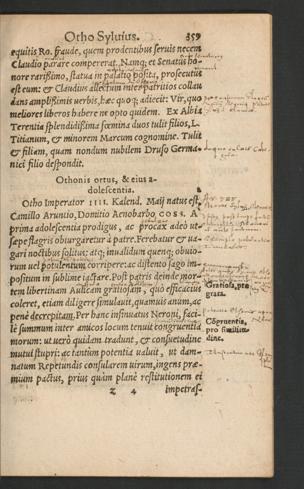 Otho Syluius. 359
equitis Ro. fraude, quem prodentibus seruis necem
Claudio parare compererat. Namq; et Senatus ho-
nore rarissimo, statua in palatio posita, prosecutus
est eum: & Claudius allectum inter patritios collau
dans amplißimis uerbis, hæc quoq; adiecit: Vir, quo
meliores liberos habere ne opto quidem. Ex Albia
Terentia splendidißima fœmina duos tulit filios, L.
Titianum, & minorem Marcum cognomine. Tulit
& filiam, quam nondum nubilem Druso Germa-
nici filio despondit.
Othonis ortus, & eius a-
dolescentia.
Otho Imperator IIII. Kalend. Maij natus est,
Camillo Aruntio, Domitio Aenobarbo COSS. A
prima adolescentia prodigus, ac procax adeò ut
sæpe flagris obiurgaretur à patre. Ferebatur & ua-
gari noctibus solitus; atq; inualidum quenq; obuio-
rum uel potulentum corripere: ac distento sago im-
positum in sublime iactare. Post patris deinde mor-
tem libertinam Aulicam gratiosam, quò efficacius
coleret, etiam diligere simulauit, quamuis anum, ac
penè decrepitam. Per hanc insinuatus Neroni, faci-
lè summum inter amicos locum tenuit congruentia
morum: ut uerò quidam tradunt, & consuetudine
mutui stupri: ac tantùm potentia ualuit, ut dam-
natum Repetundis consularem uirum, ingens præ-
mium pactus, prius quàm planè restitutionem ei
Z 4 impetras-
Gratiosa, pro
grata.
Cõgruentia,
pro similitu-
dine.